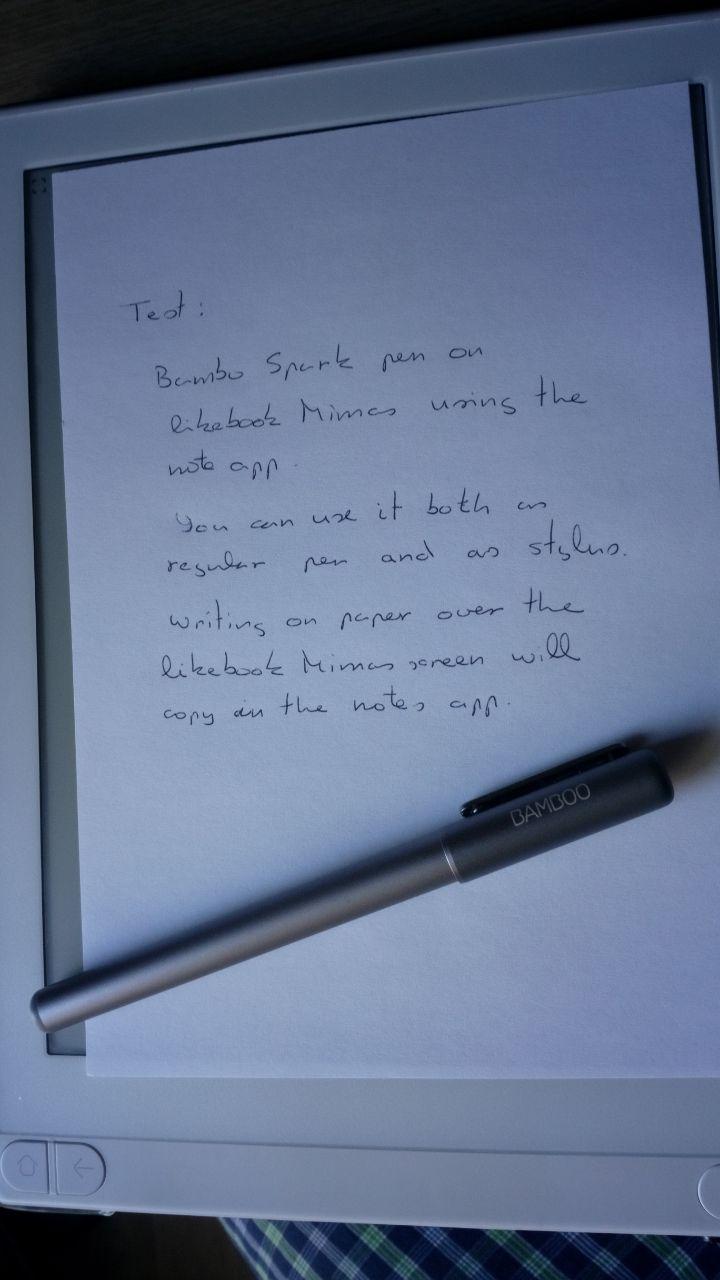 Test:
Bambo Spark pen on
likebook Mimas using the
note app.
You can use it both as
regular pen and as stylus.
writing on paper over the
likebook Mimas screen will
copy in the notes app.
BAMBOO